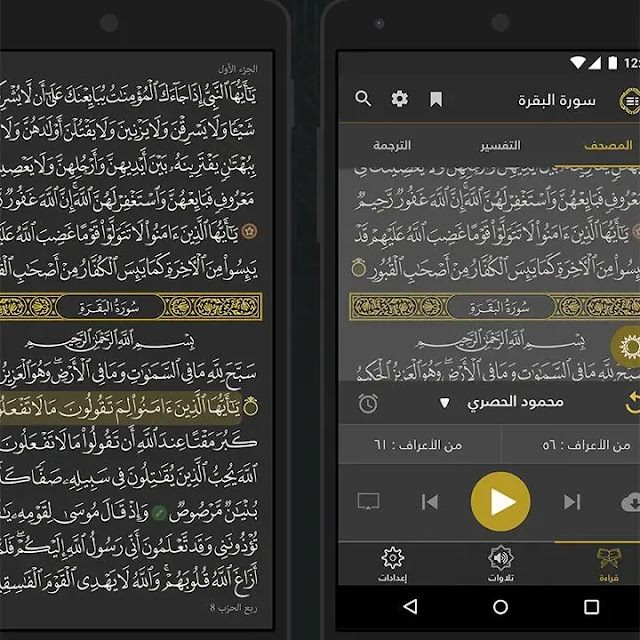 الجزء الأول
يَٰٓأَيُّهَا ٱلنَّبِىُّ إِذَا جَآءَكَ ٱلْمُؤْمِنَٰتُ يُبَايِعْنَكَ عَلَىٰٓ أَن لَّا يُشْرِ
شَيْـًٔا وَلَا يَسْرِقْنَ وَلَا يَزْنِينَ وَلَا يَقْتُلْنَ أَوْلَٰدَهُنَّ وَلَا
بِبُهْتَٰنٍ يَفْتَرِينَهُۥ بَيْنَ أَيْدِيهِنَّ وَأَرْجُلِهِنَّ وَلَا يَعْصِينَ
مَعْرُوفٍ فَبَايِعْهُنَّ وَٱسْتَغْفِرْ لَهُنَّ ٱللَّهَ إِنَّ ٱللَّهَ غَفُورٌ
يَٰٓأَيُّهَا ٱلَّذِينَ ءَامَنُوا۟ لَا تَتَوَلَّوْا۟ قَوْمًا غَضِبَ ٱللَّهُ
يَئِسُوا۟ مِنَ ٱلْءَاخِرَةِ كَمَا يَئِسَ ٱلْكُفَّارُ مِنْ أَصْحَٰبِ
سُورَةُ البَقَرَةِ
بِسْمِ ٱللَّهِ ٱلرَّحْمَٰنِ ٱلرَّحِيمِ
سَبَّحَ لِلَّهِ مَا فِى ٱلسَّمَٰوَٰتِ وَمَا فِى ٱلْأَرْضِ وَهُوَ ٱلْعَزِيزُ
يَٰٓأَيُّهَا ٱلَّذِينَ ءَامَنُوا۟ لِمَ تَقُولُونَ مَا لَا تَفْعَلُو
كَبُرَ مَقْتًا عِندَ ٱللَّهِ أَن تَقُولُوا۟ مَا لَا تَفْعَلُونَ
ٱللَّهَ يُحِبُّ ٱلَّذِينَ يُقَٰتِلُونَ فِى سَبِيلِهِۦ صَفًّا كَأَ
بُنْيَٰنٌ مَّرْصُوصٌ وَإِذْ قَالَ مُوسَىٰ لِقَوْمِهِۦ
تُؤْذُونَنِى وَقَد تَّعْلَمُونَ أَنِّى رَسُولُ ٱللَّهِ إِلَيْكُمْ فَلَمَّ
أَزَاغَ ٱللَّهُ قُلُوبَهُمْ وَٱللَّهُ لَا يَهْدِى ٱلْقَوْمَ ٱلْفَٰسِقِ
ربع الحزب 8
12:
سورة البقرة
المصحف
التفسير
الترجمة
مَعْرُوفٍ فَبَايِعْهُنَّ وَٱسْتَغْفِرْ لَهُنَّ ٱللَّهَ إِنَّ ٱللَّهَ غَفُورٌ رَّحِيمٌ
يَٰٓأَيُّهَا ٱلَّذِينَ ءَامَنُوا۟ لَا تَتَوَلَّوْا۟ قَوْمًا غَضِبَ ٱللَّهُ عَلَيْهِمْ قَدْ
يَئِسُوا۟ مِنَ ٱلْءَاخِرَةِ كَمَا يَئِسَ ٱلْكُفَّارُ مِنْ أَصْحَٰبِ ٱلْقُبُورِ
سُورَةُ البَقَرَةِ
بِسْمِ ٱللَّهِ ٱلرَّحْمَٰنِ ٱلرَّحِيمِ
سَبَّحَ لِلَّهِ مَا فِى ٱلسَّمَٰوَٰتِ وَمَا فِى ٱلْأَرْضِ وَهُوَ ٱلْعَزِيزُ ٱلْحَكِيمُ
محمود الحصري
من الأعراف : ٥٦
من الأعراف : ٦١
قراءة
تلاوات
إعدادات